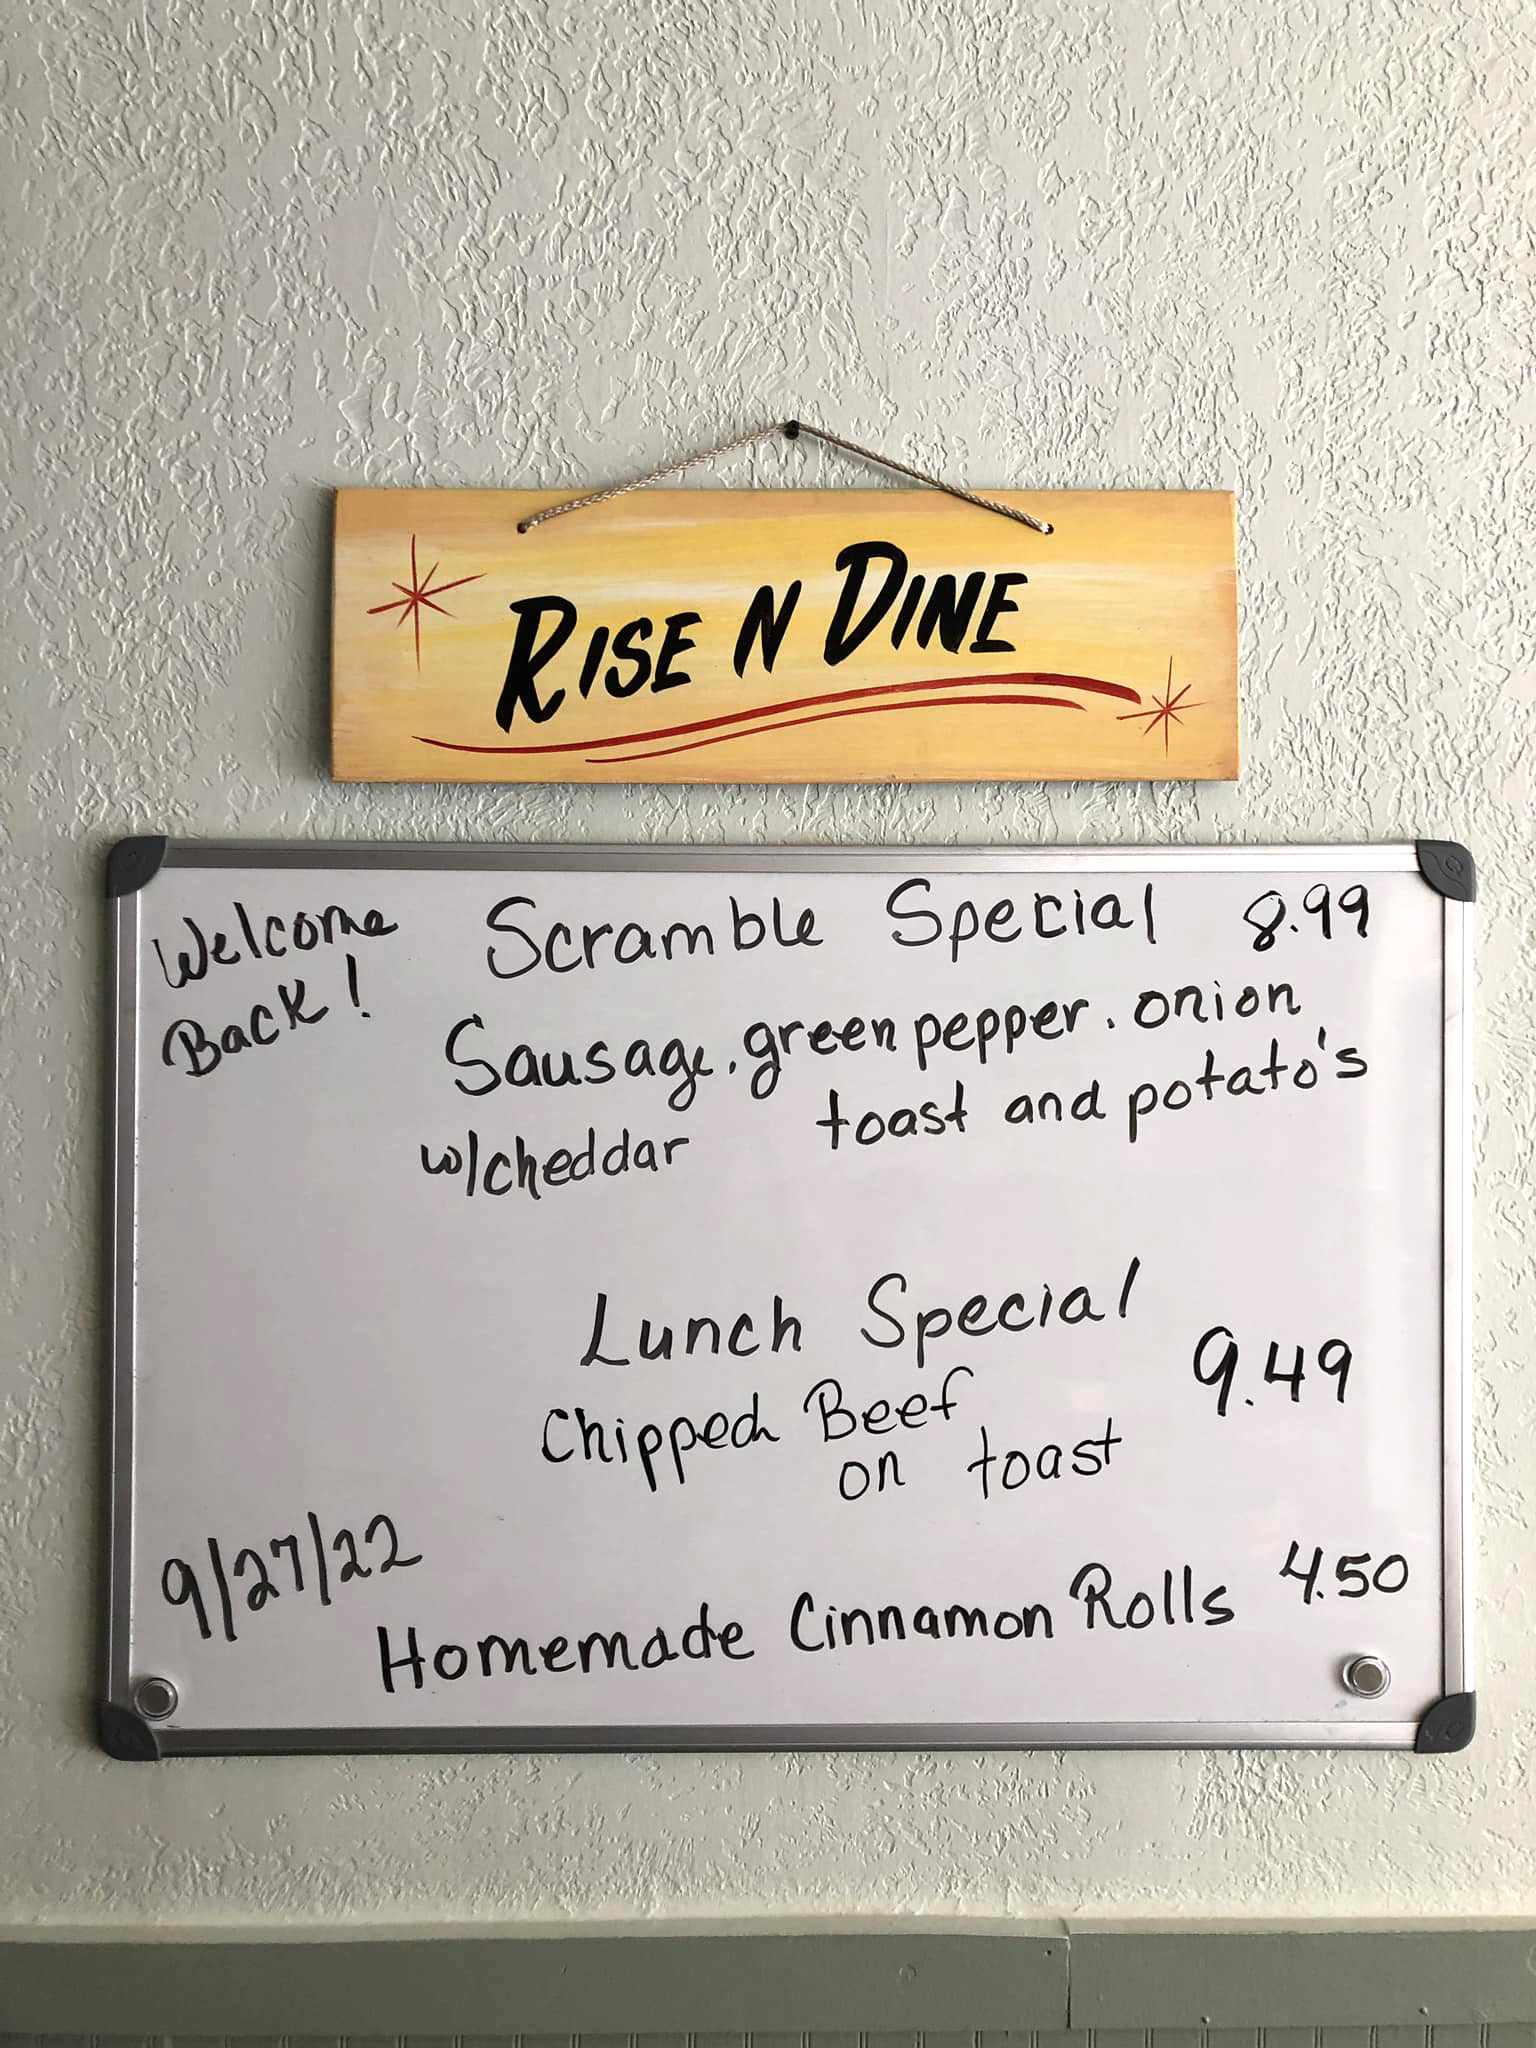 RISE N DINE
Welcome
Back!
Scramble Special 8.99
Sausage, green pepper, onion
w/cheddar toast and potato's
Lunch Special
Chipped Beef 9.49
on toast
9/27/22
Homemade Cinnamon Rolls 4.50